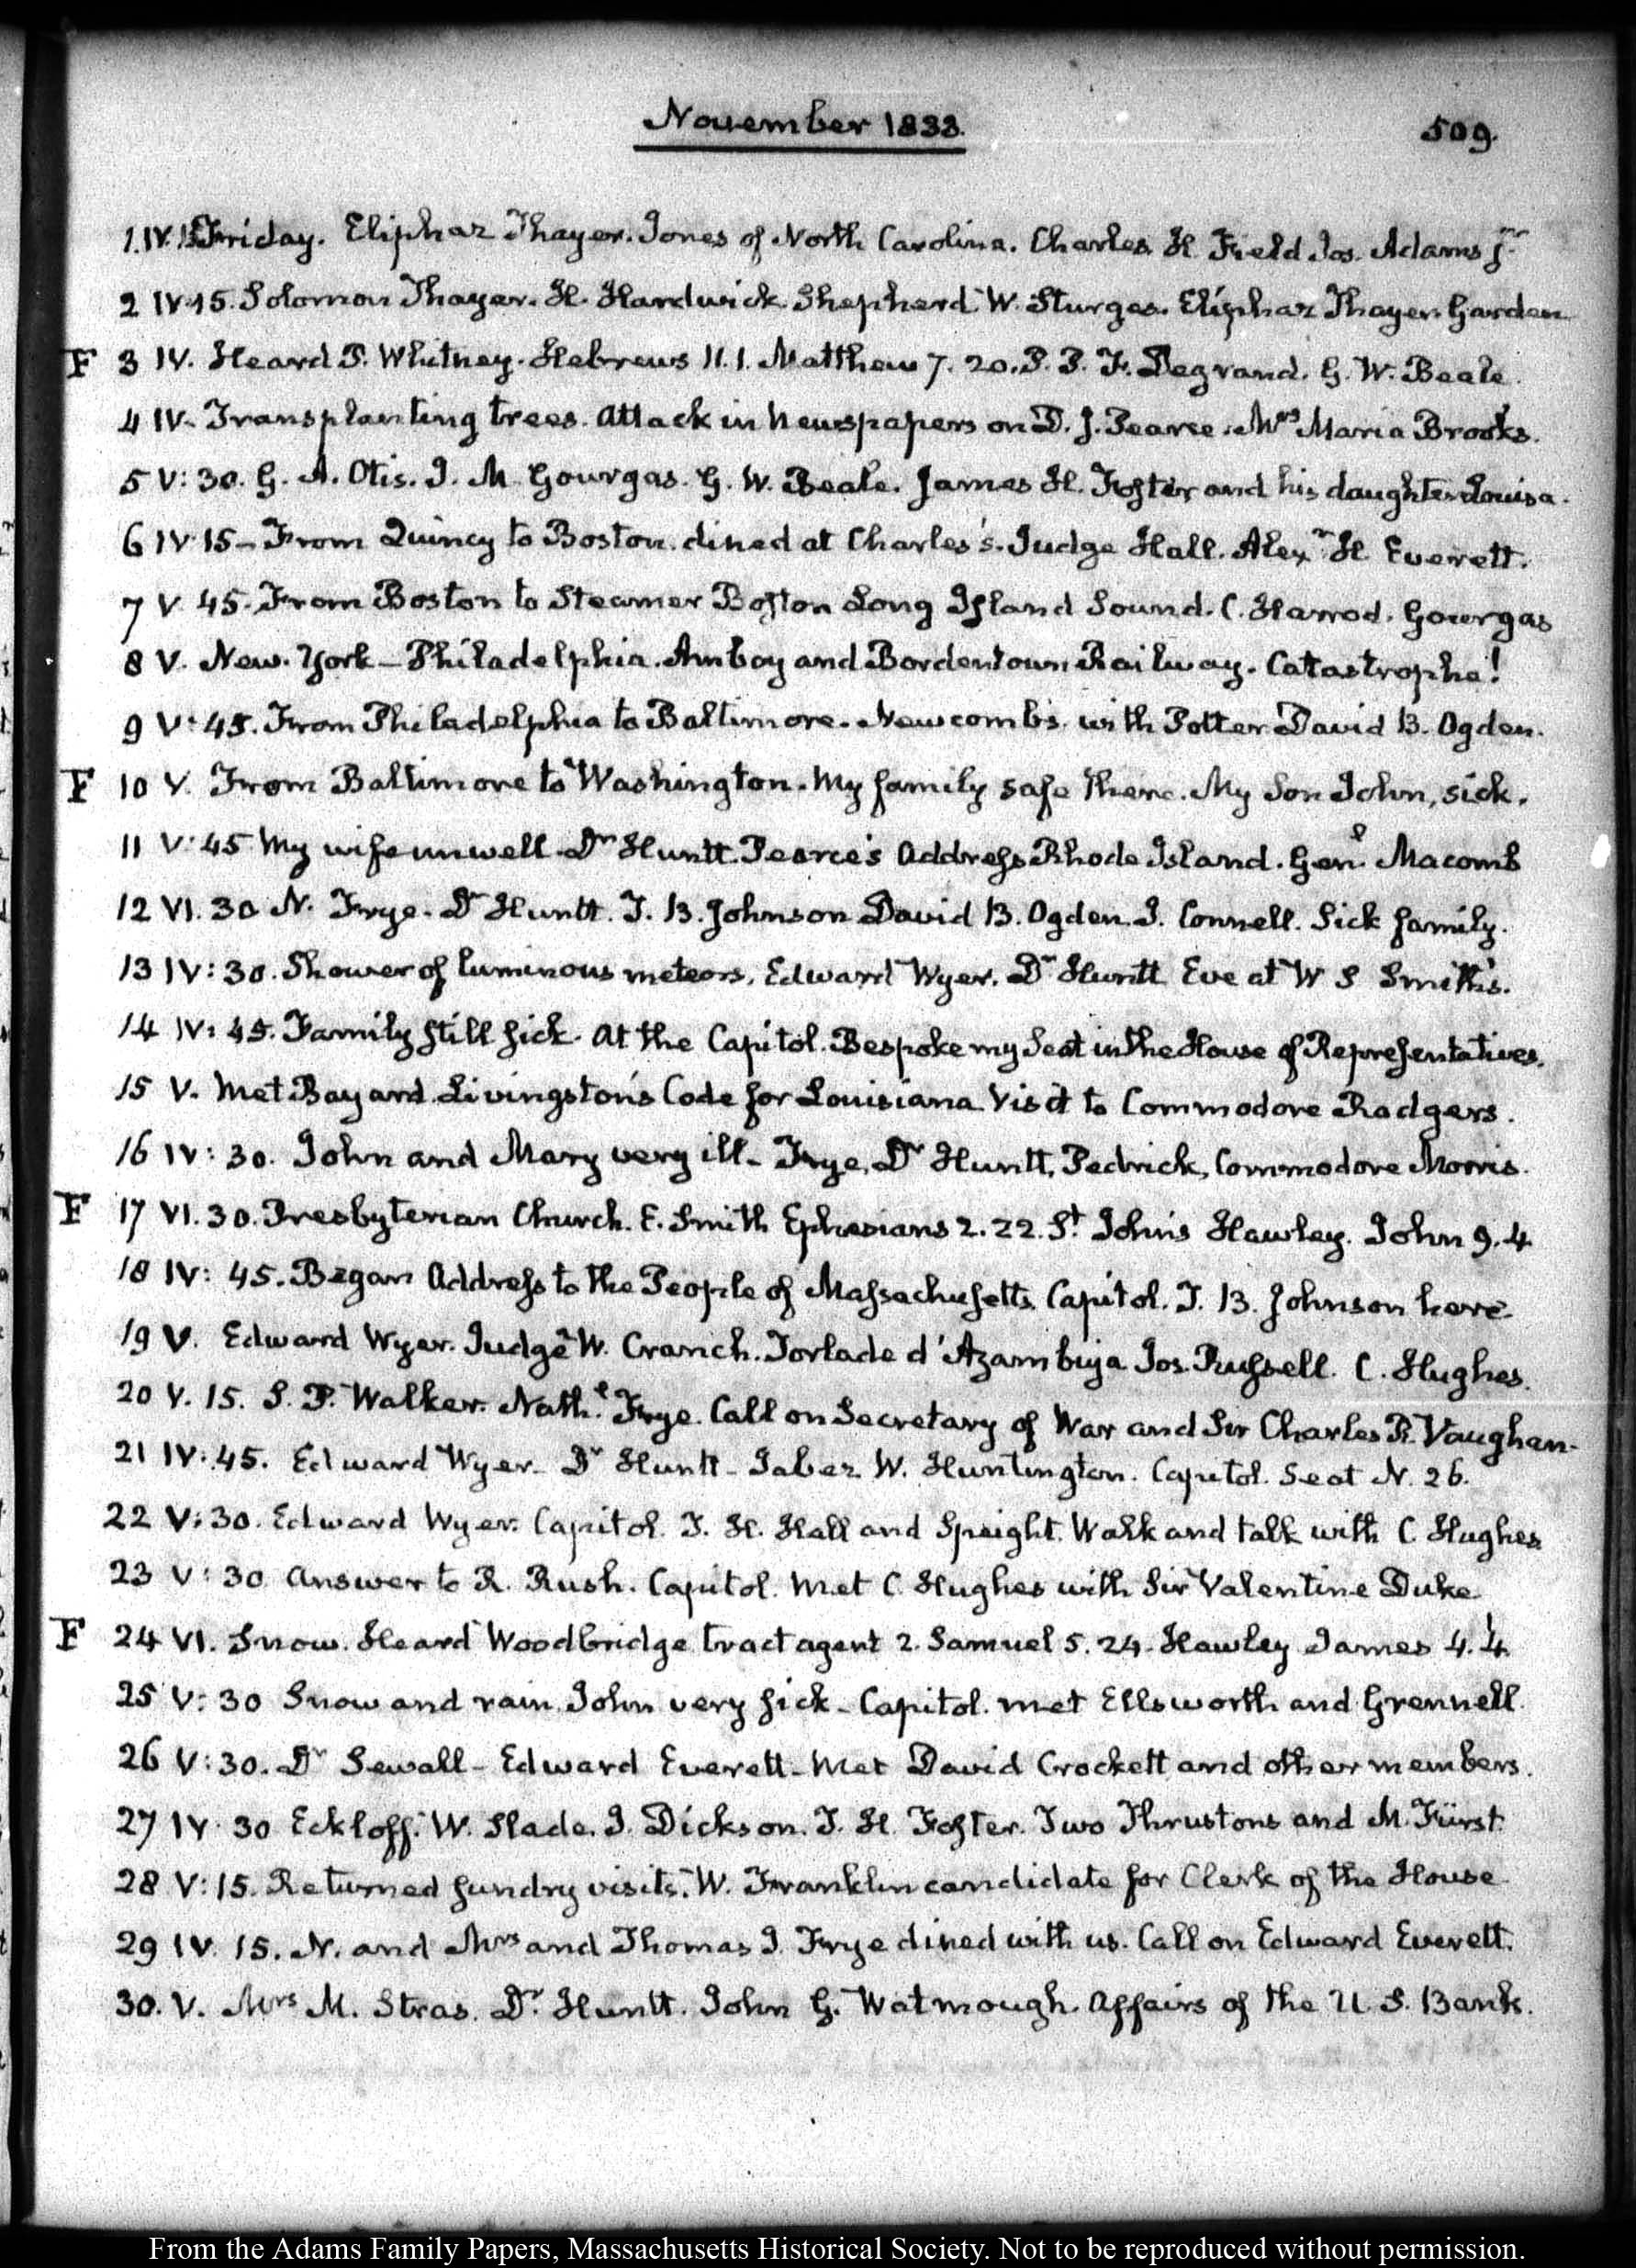 November 1833.
509.
1. IV. 15 Friday. Eliphaz Thayer. Jones of North Carolina. Charles H. Field Jos. Adams jr
2 IV 15. Solomon Thayer. H. Hardwick. Shepherd W. Sturges. Eliphaz Thayer. Garden
F 3 IV. Heard P. Whitney. Hebrews 11. 1. Matthew 7. 20. P. P. F. Degrand. G. W. Beale.
4 IV. Transplanting trees. Attack in Newspapers on D. J. Pearce. Mrs Maria Brooks.
5 V: 30. G. A. Otis. J. M. Gourgas. G. W. Beale. James H. Foster and his daughter Louisa.
6 IV 15 – From Quincy to Boston. dined at Charles's. Judge Hall. Alexr H Everett.
7 V. 45. From Boston to Steamer Boston Long Island Sound. C. Harrod. Gourgas
8 V. New-York – Philadelphia. Amboy and Bordentown Railway. Catastrophe!
9 V: 45. From Philadelphia to Baltimore. Newcomb's. with Potter David B. Ogden.
F 10 V. From Baltimore to Washington. My family safe there. My Son John, sick.
11 V: 45 My wife unwell. Dr Huntt. Pearce's Address Rhode Island. Genl Macomb
12 VI. 30 N. Frye. Dr Huntt. T. B. Johnson David B. Ogden. J. Connell. Sick family.
13 IV: 30. Shower of luminous meteors. Edward Wyer. Dr Huntt Eve at W S Smith's.
14 IV: 45. Family still sick. At the Capitol. Bespoke my Seat in the House of Representatives.
15 V. Met Bayard. Livingston's Code for Louisiana Visit to Commodore Rodgers.
16 IV: 30. John and Mary very ill – Frye, Dr Huntt, Pedrick, Commodore Morris.
F 17 VI. 30. Presbyterian Church. E. Smith Ephesians 2. 22. St John's Hawley. John 9. 4
18 IV: 45. Began Address to the People of Massachusetts Capitol. T. B. Johnson here
19 V. Edward Wyer. Judge W. Cranch. Torlade d'Azambuja Jos. Russell. C. Hughes.
20 V. 15. S. P. Walker. Nathl Frye. Call on Secretary of War and Sir Charles R. Vaughan.
21 IV: 45. Edward Wyer – Dr Huntt – Jabez W. Huntington. Capitol. Seat N. 26.
22 V: 30. Edward Wyer. Capitol. T. H. Hall and Speight. Walk and talk with C. Hughes
23 V: 30 Answer to R. Rush. Capitol. Met C. Hughes with Sir Valentine Duke
F 24 VI. Snow. Heard Woodbridge tract agent 2. Samuel 5. 24. Hawley James 4. 4.
25 V: 30 Snow and rain. John very sick – Capitol. met Ellsworth and Grennell.
26 V: 30. Dr Sewall – Edward Everett – Met David Crockett and other members.
27 IV 30 Eckloff. W. Slade. J. Dickson. T. H. Foster. Two Thrustons and M. Fürst
28 V: 15. Returned sundry visits. W. Franklin candidate for Clerk of the House.
29 IV. 15. N. and Mrs and Thomas J. Frye dined with us. Call on Edward Everett.
30. V. Mrs M. Stras. Dr. Huntt. John G. Watmough. Affairs of the U. S. Bank.
From the Adams Family Papers, Massachusetts Historical Society. Not to be reproduced without permission.